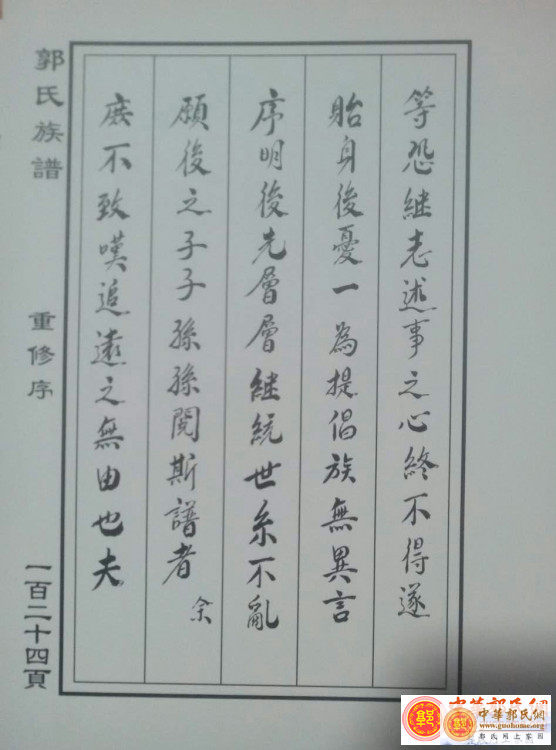 等恐继志述事之心終不得遂
貽身後憂一為提倡族無異言
序明後先層層继統世系不亂
願後之子子孫孫閱斯譜者
余
庶不致嘆追遠之無由也夫
郭氏族譜
重修序
一百二十四頁
中華郭氏網
www.guohome.org
郭氏網上家園